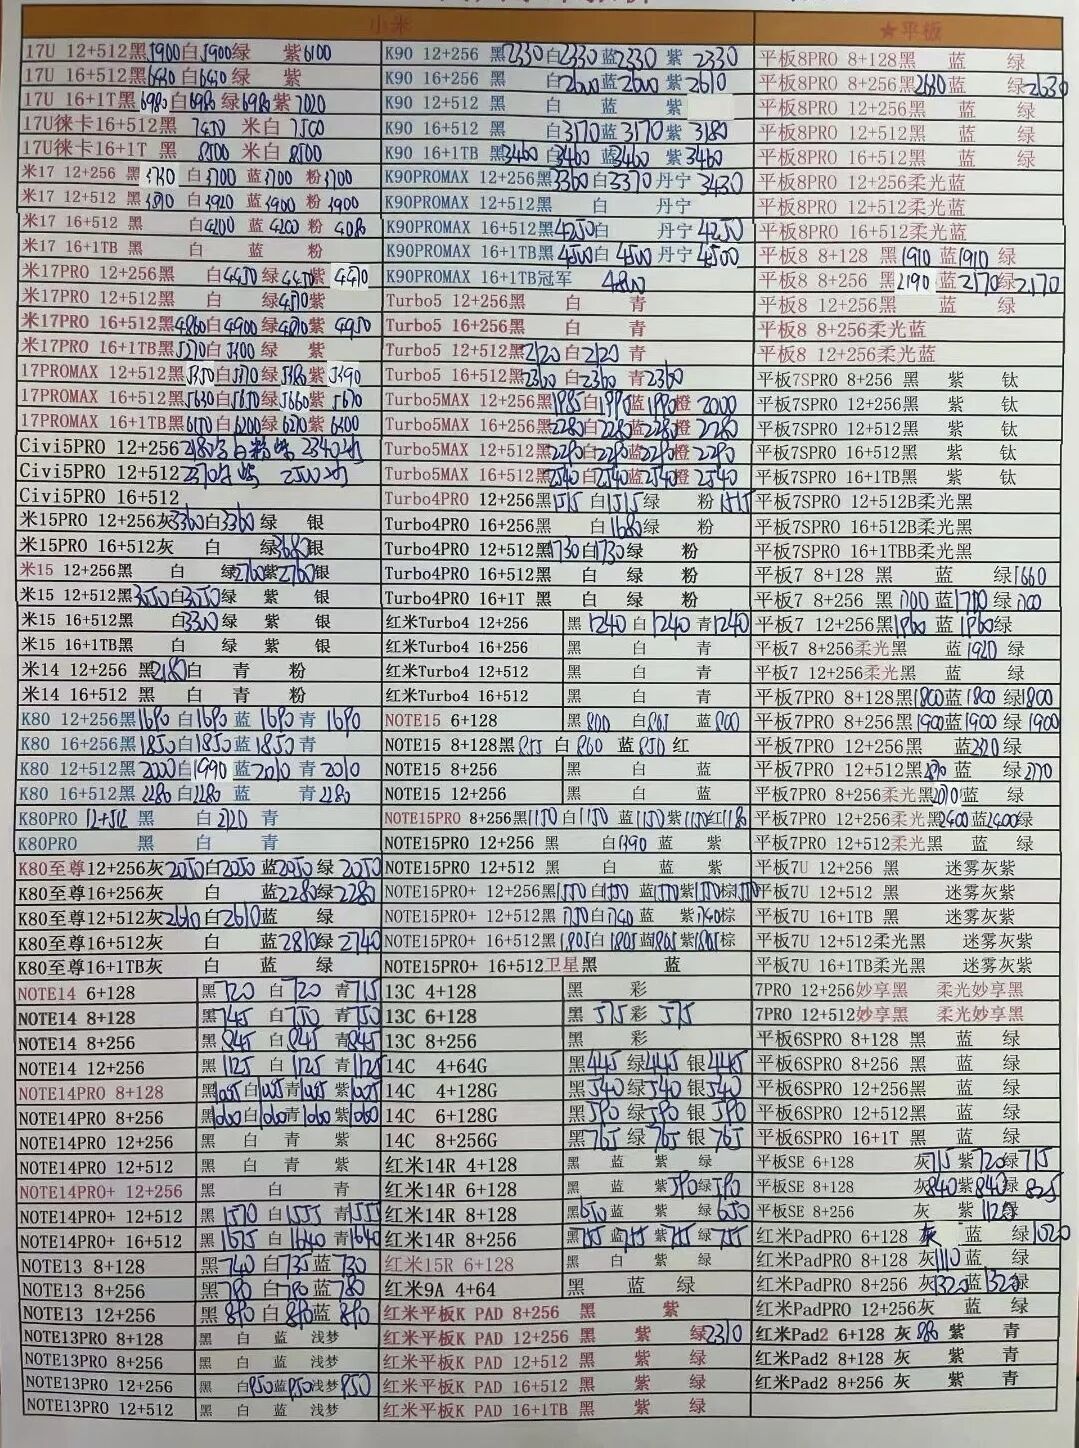 小米
★平板
17U 12+512黑5900白5900绿 紫6100
17U 16+512黑6420白6420绿 紫
17U 16+1T黑6980白6980绿6980紫7020
17U徕卡16+512黑 7450 米白 7500
17U徕卡16+1T 黑 8500 米白 8500
米17 12+256 黑3730 白3700 蓝3700 粉3700
米17 12+512 黑3890 白3920 蓝3900 粉3900
米17 16+512 黑 白4200 蓝4200 粉4080
米17 16+1TB 黑 白 蓝 粉
米17PRO 12+256黑 白4450绿4450紫4470
米17PRO 12+512黑 白 绿4570紫
米17PRO 16+512黑4860白4900绿4870紫4950
米17PRO 16+1TB黑5270白5300绿 紫
17PROMAX 12+512黑5350白5370绿5380紫5390
17PROMAX 16+512黑5630白5650绿5660紫5670
17PROMAX 16+1TB黑6170白6200绿6270紫6300
Civi5PRO 12+256
Civi5PRO 12+512
Civi5PRO 16+512
米15PRO 12+256灰3360白3360绿 银
米15PRO 16+512灰 白 绿3680银
米15 12+256黑 白 绿2760紫2760银
米15 12+512黑3050白3050绿 紫 银
米15 16+512黑 白3300绿 紫 银
米15 16+1TB黑 白 绿 紫 银
米14 12+256 黑2180白 青 粉
米14 16+512 黑 白 青 粉
K80 12+256黑1690白1690蓝1690青1690
K80 16+256黑1850白1850蓝1850青
K80 12+512黑2000白1990蓝2010青2010
K80 16+512黑2280白2280蓝 青2280
K80PRO 12+512 黑 白2120 青
K80PRO 黑 白 青
K80至尊12+256灰2050白2050蓝2050绿2050
K80至尊16+256灰 白 蓝2280绿2280
K80至尊12+512灰2610白2610蓝 绿
K80至尊16+512灰 白 蓝2810绿2740
K80至尊16+1TB灰 白 蓝 绿
NOTE14 6+128 黑720 白720 青715
NOTE14 8+128 黑745 白750 青750
NOTE14 8+256 黑845 白845 青845
NOTE14 12+256 黑1125 白1125 青1125
NOTE14PRO 8+128 黑1005白1005青1005紫1005
NOTE14PRO 8+256 黑1060白1060青1060紫1060
NOTE14PRO 12+256 黑 白 青 紫
NOTE14PRO 12+512 黑 白 青 紫
NOTE14PRO+ 12+256 黑 白 青
NOTE14PRO+ 12+512 黑1570白1555青1555
NOTE14PRO+ 16+512 黑1675白1640青1640
NOTE13 8+128 黑740白735蓝730
NOTE13 8+256 黑780白780蓝780
NOTE13 12+256 黑890白890蓝890
NOTE13PRO 8+128 黑 白 蓝 浅梦
NOTE13PRO 8+256 黑 白 蓝 浅梦
NOTE13PRO 12+256 黑 白950蓝950浅梦950
NOTE13PRO 12+512 黑 白 蓝 浅梦
K90 12+256 黑2330白2330蓝2330 紫2330
K90 16+256 黑 白2600蓝2600紫2610
K90 12+512 黑 白 蓝 紫
K90 16+512 黑 白3170蓝3170紫3180
K90 16+1TB黑3460白3460蓝3460紫3460
K90PROMAX 12+256黑3360白3370丹宁3430
K90PROMAX 12+512黑 白 丹宁
K90PROMAX 16+512黑4250白 丹宁4250
K90PROMAX 16+1TB黑4500白4500丹宁4500
K90PROMAX 16+1TB冠军 4800
Turbo5 12+256黑 白 青
Turbo5 16+256黑 白 青
Turbo5 12+512黑2120白2120青
Turbo5 16+512黑2360白2360青2360
Turbo5MAX 12+256黑1985白1990蓝1990橙2000
Turbo5MAX 16+256黑2280白2280蓝2280橙2280
Turbo5MAX 12+512黑2290白2290蓝2290橙2290
Turbo5MAX 16+512黑2540白2540蓝2540橙2540
Turbo4PRO 12+256黑1515白1515绿 粉1515
Turbo4PRO 16+256黑 白1680绿 粉
Turbo4PRO 12+512黑1730白1730绿 粉
Turbo4PRO 16+512黑 白 绿 粉
Turbo4PRO 16+1T 黑 白 绿 粉
红米Turbo4 12+256 黑1240白1240青1240
红米Turbo4 16+256 黑 白 青
红米Turbo4 12+512 黑 白 青
红米Turbo4 16+512 黑 白 青
NOTE15 6+128 黑800 白805 蓝800
NOTE15 8+128黑855 白860 蓝850红
NOTE15 8+256 黑 白 蓝
NOTE15 12+256 黑 白 蓝
NOTE15PRO 8+256黑1150白1150蓝1150紫1150红1180
NOTE15PRO 12+256 黑 白1390蓝 紫
NOTE15PRO 12+512 黑 白 蓝 紫
NOTE15PRO+ 12+256黑1550白1550蓝1550紫1550棕1550
NOTE15PRO+ 12+512黑1750白1740蓝 紫1740棕
NOTE15PRO+ 16+512黑1805白1805蓝1805紫1805棕
NOTE15PRO+ 16+512卫星黑 蓝
13C 4+128 黑 彩
13C 6+128 黑575彩575
13C 8+256 黑 彩
14C 4+64G 黑445绿445银445
14C 4+128G 黑540绿540银540
14C 6+128G 黑590绿590银590
14C 8+256G 黑765绿765银765
红米14R 4+128 黑 蓝 紫 绿
红米14R 6+128 黑 蓝 紫590绿590
红米14R 8+128 黑650蓝 紫 绿650
红米14R 8+256 黑755蓝755紫755绿755
红米15R 6+128 黑 白 紫 绿
红米9A 4+64 黑 蓝 绿
红米平板K PAD 8+256 黑 紫
红米平板K PAD 12+256 黑 紫 绿2310
红米平板K PAD 12+512 黑 紫 绿
红米平板K PAD 16+512 黑 紫 绿
红米平板K PAD 16+1TB 黑 紫 绿
平板8PRO 8+128黑 蓝 绿
平板8PRO 8+256黑2630蓝 绿2630
平板8PRO 12+256黑 蓝 绿
平板8PRO 12+512黑 蓝 绿
平板8PRO 16+512黑 蓝 绿
平板8PRO 12+256柔光蓝
平板8PRO 12+512柔光蓝
平板8PRO 16+512柔光蓝
平板8 8+128 黑1910蓝1910绿
平板8 8+256 黑2190蓝2170绿2170
平板8 12+256黑 蓝 绿
平板8 8+256柔光蓝
平板8 12+256柔光蓝
平板7SPRO 8+256 黑 紫 钛
平板7SPRO 12+256黑 紫 钛
平板7SPRO 12+512黑 紫 钛
平板7SPRO 16+512黑 紫 钛
平板7SPRO 16+1TB黑 紫 钛
平板7SPRO 12+512B柔光黑
平板7SPRO 16+512B柔光黑
平板7SPRO 16+1TBB柔光黑
平板7 8+128 黑 蓝 绿1660
平板7 8+256 黑1700蓝1710绿1700
平板7 12+256黑1860蓝1860绿
平板7 8+256柔光黑 蓝1920绿
平板7 12+256柔光黑 蓝 绿
平板7PRO 8+128黑1800蓝1800绿1800
平板7PRO 8+256黑1900蓝1900绿1900
平板7PRO 12+256黑 蓝 绿
平板7PRO 12+512黑 蓝 绿
平板7PRO 8+256柔光黑2010蓝 绿
平板7PRO 12+256柔光黑2400蓝2400绿
平板7PRO 12+512柔光黑 蓝 绿
平板7U 12+256 黑 迷雾灰紫
平板7U 12+512 黑 迷雾灰紫
平板7U 16+1TB 黑 迷雾灰紫
平板7U 12+512柔光黑 迷雾灰紫
平板7U 16+1TB柔光黑 迷雾灰紫
7PRO 12+256妙享黑 柔光妙享黑
7PRO 12+512妙享黑 柔光妙享黑
平板6SPRO 8+128 黑 蓝 绿
平板6SPRO 8+256 黑 蓝 绿
平板6SPRO 12+256黑 蓝 绿
平板6SPRO 12+512黑 蓝 绿
平板6SPRO 16+1T 黑 蓝 绿
平板SE 6+128 灰715紫720绿715
平板SE 8+128 灰840紫840绿825
平板SE 8+256 灰 紫1125绿
红米PadPRO 6+128 灰 蓝 绿1020
红米PadPRO 8+128 灰1110蓝 绿
红米PadPRO 8+256 灰1320蓝1320绿
红米PadPRO 12+256灰 蓝 绿
红米Pad2 6+128 灰886紫 青
红米Pad2 8+128 灰 紫 青
红米Pad2 8+256 灰 紫 青